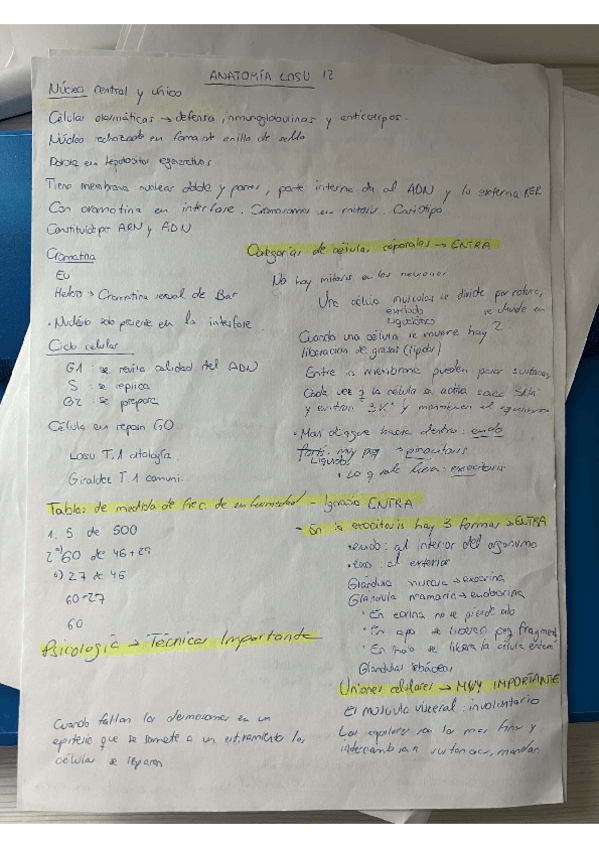 ANATOMÍA LOSU 12
Núcleo central y único
Células plasmáticas → defensa, inmunoglobulinas y anticuerpos.
Núcleo rechazado en forma de anillo de sello
en hepatocitos
Tiene membrana nuclear doble y poros, parte interna da al ADN y la externa RER
Con cromatina en interfase. Cromosomas en mitosis. Cariotipo
Constituido por ARN y ADN
Cromatina
EU
Hetero → Cromatina sexual de Bar
• Nucléolo solo presente en la interfase
Ciclo celular
G1 : se revisa calidad del ADN
S : se replica
G2 : se prepara
Célula en reposo G0
Losu T.1 citología
Giraldez T.1 comuni.
Tablas de medida de frec. de enfermedad - Ignacio ENTRA
1. 5 de 500
2 a) 60 de 46+27
b) 27 de 46
60-27
60
Psicología → Técnicas Importante
Cuando fallan los desmosomas en un
epitelio que se somete a un estiramiento las
células se separan
Categorías de células corporales → ENTRA
No hay mitosis en las neuronas
Una célula muscular se divide por rotura,
se divide en 2
Cuando una célula se muere hay
liberación de grasas (lipidos)
Entre la membrana pueden pasar sustancias
Cada vez q la célula se activa saca 3Na
y entran 3K⁺ y mantienen el equilibrio
• Mas ataque hacia dentro: endo
Líquidos → pinocitosis
• Lo q sale fuera: exocitosis
- En la exocitosis hay 3 formas → ENTRA
• endo: al interior del organismo
• exo: al exterior
Glándula mucosa → exocrina
Glándula mamaria → endocrina
• En ecrina no se pierde nada
• En apo se liberan peq fragmen
• En holo se libera la célula entera
Glándulas sebáceas
Uniones celulares → MUY IMPORTANTE
El músculo visceral: involuntario
Los capilares son los mas finos y
intercambian sustancias, mandan